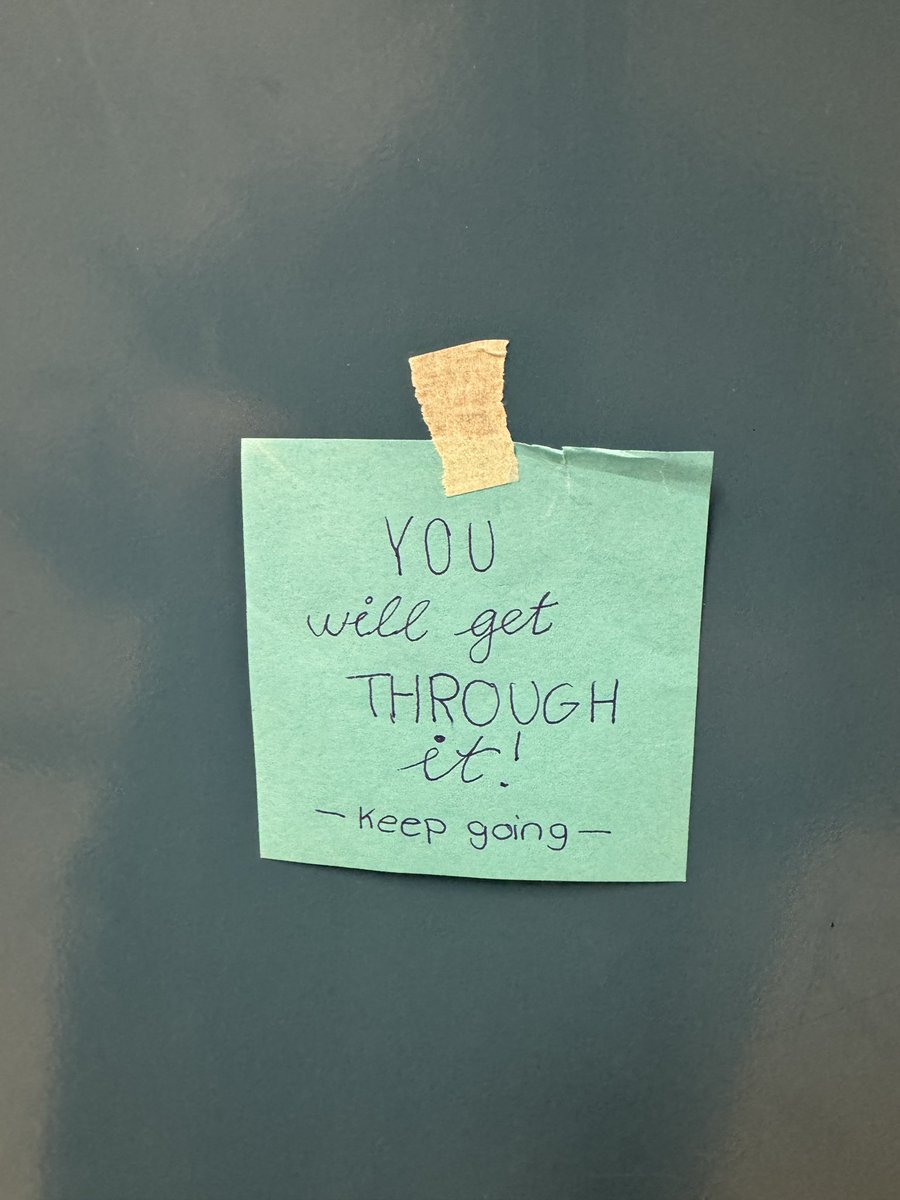 YOU
will get
THROUGH
it!
- Keep going -